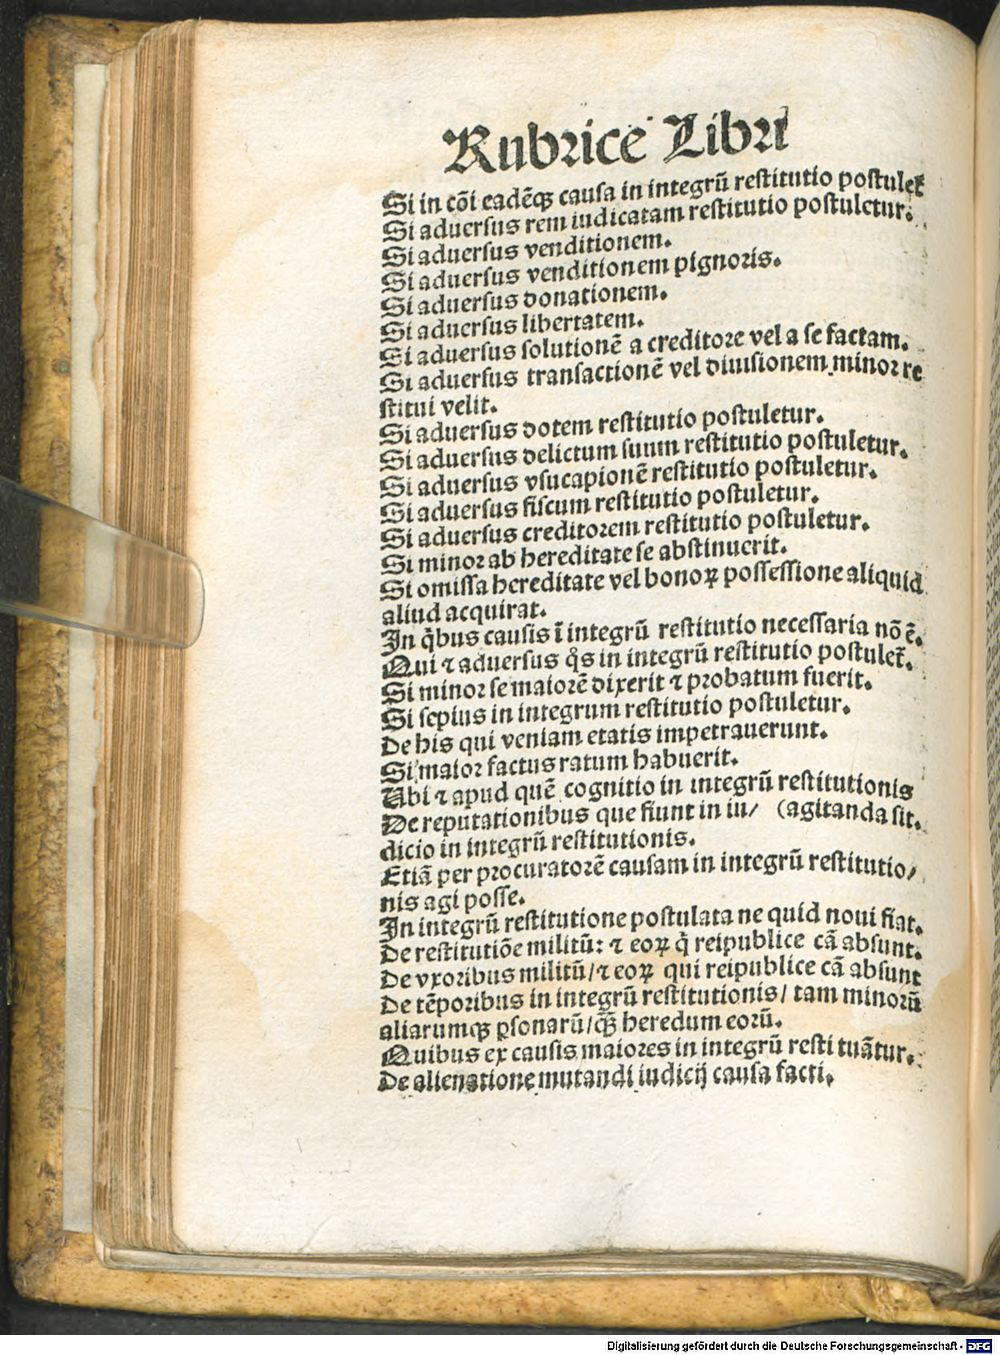 Rubrice Libri
Si in cōi eadēqꝫ causa in integrū restitutio postuleť
Si aduersus rem iudicatam restitutio postuletur.
Si aduersus venditionem.
Si aduersus venditionem pignoris.
Si aduersus donationem.
Si aduersus libertatem.
Si aduersus solutionē a creditore vel a se factam.
Si aduersus transactionē vel diuisionem minor re
stitui velit.
Si aduersus dotem restitutio postuletur.
Si aduersus delictum suum restitutio postuletur.
Si aduersus vsucapionē restitutio postuletur.
Si aduersus fiscum restitutio postuletur.
Si aduersus creditorem restitutio postuletur.
Si minor ab hereditate se abstinuerit.
Si omissa hereditate vel bonoꝝ possessione aliquid
aliud acquirat.
In q̇bus causis ī integrū restitutio necessaria nō ē.
Qui ⁊ aduersus q̊s in integrū restitutio postuleť.
Si minor se maiorē dixerit ⁊ probatum fuerit.
Si sepius in integrum restitutio postuletur.
De his qui veniam etatis impetrauerunt.
Si maior factus ratum habuerit.
Ubi ⁊ apud quē cognitio in integrū restitutionis
De reputationibus que fiunt in iu/ (agitanda sit.
dicio in integrū restitutionis.
Etiā per procuratorē causam in integrū restitutio/
nis agi posse.
In integrū restitutione postulata ne quid noui fiat.
De restitutiōe militū: ⁊ eoꝝ q̇ reipublice cā absunt.
De vxoribus militū/ ⁊ eoꝝ qui reipublice cā absunt
De tēporibus in integrū restitutionis/ tam minorū
aliarumqꝫ ꝑsonarū/ qꝫ̄ heredum eorū.
Quibus ex causis maiores in integrū resti tuātur.
De alienatione mutandi iudicij causa facti.
Digitalisierung gefördert durch die Deutsche Forschungsgemeinschaft - DFG